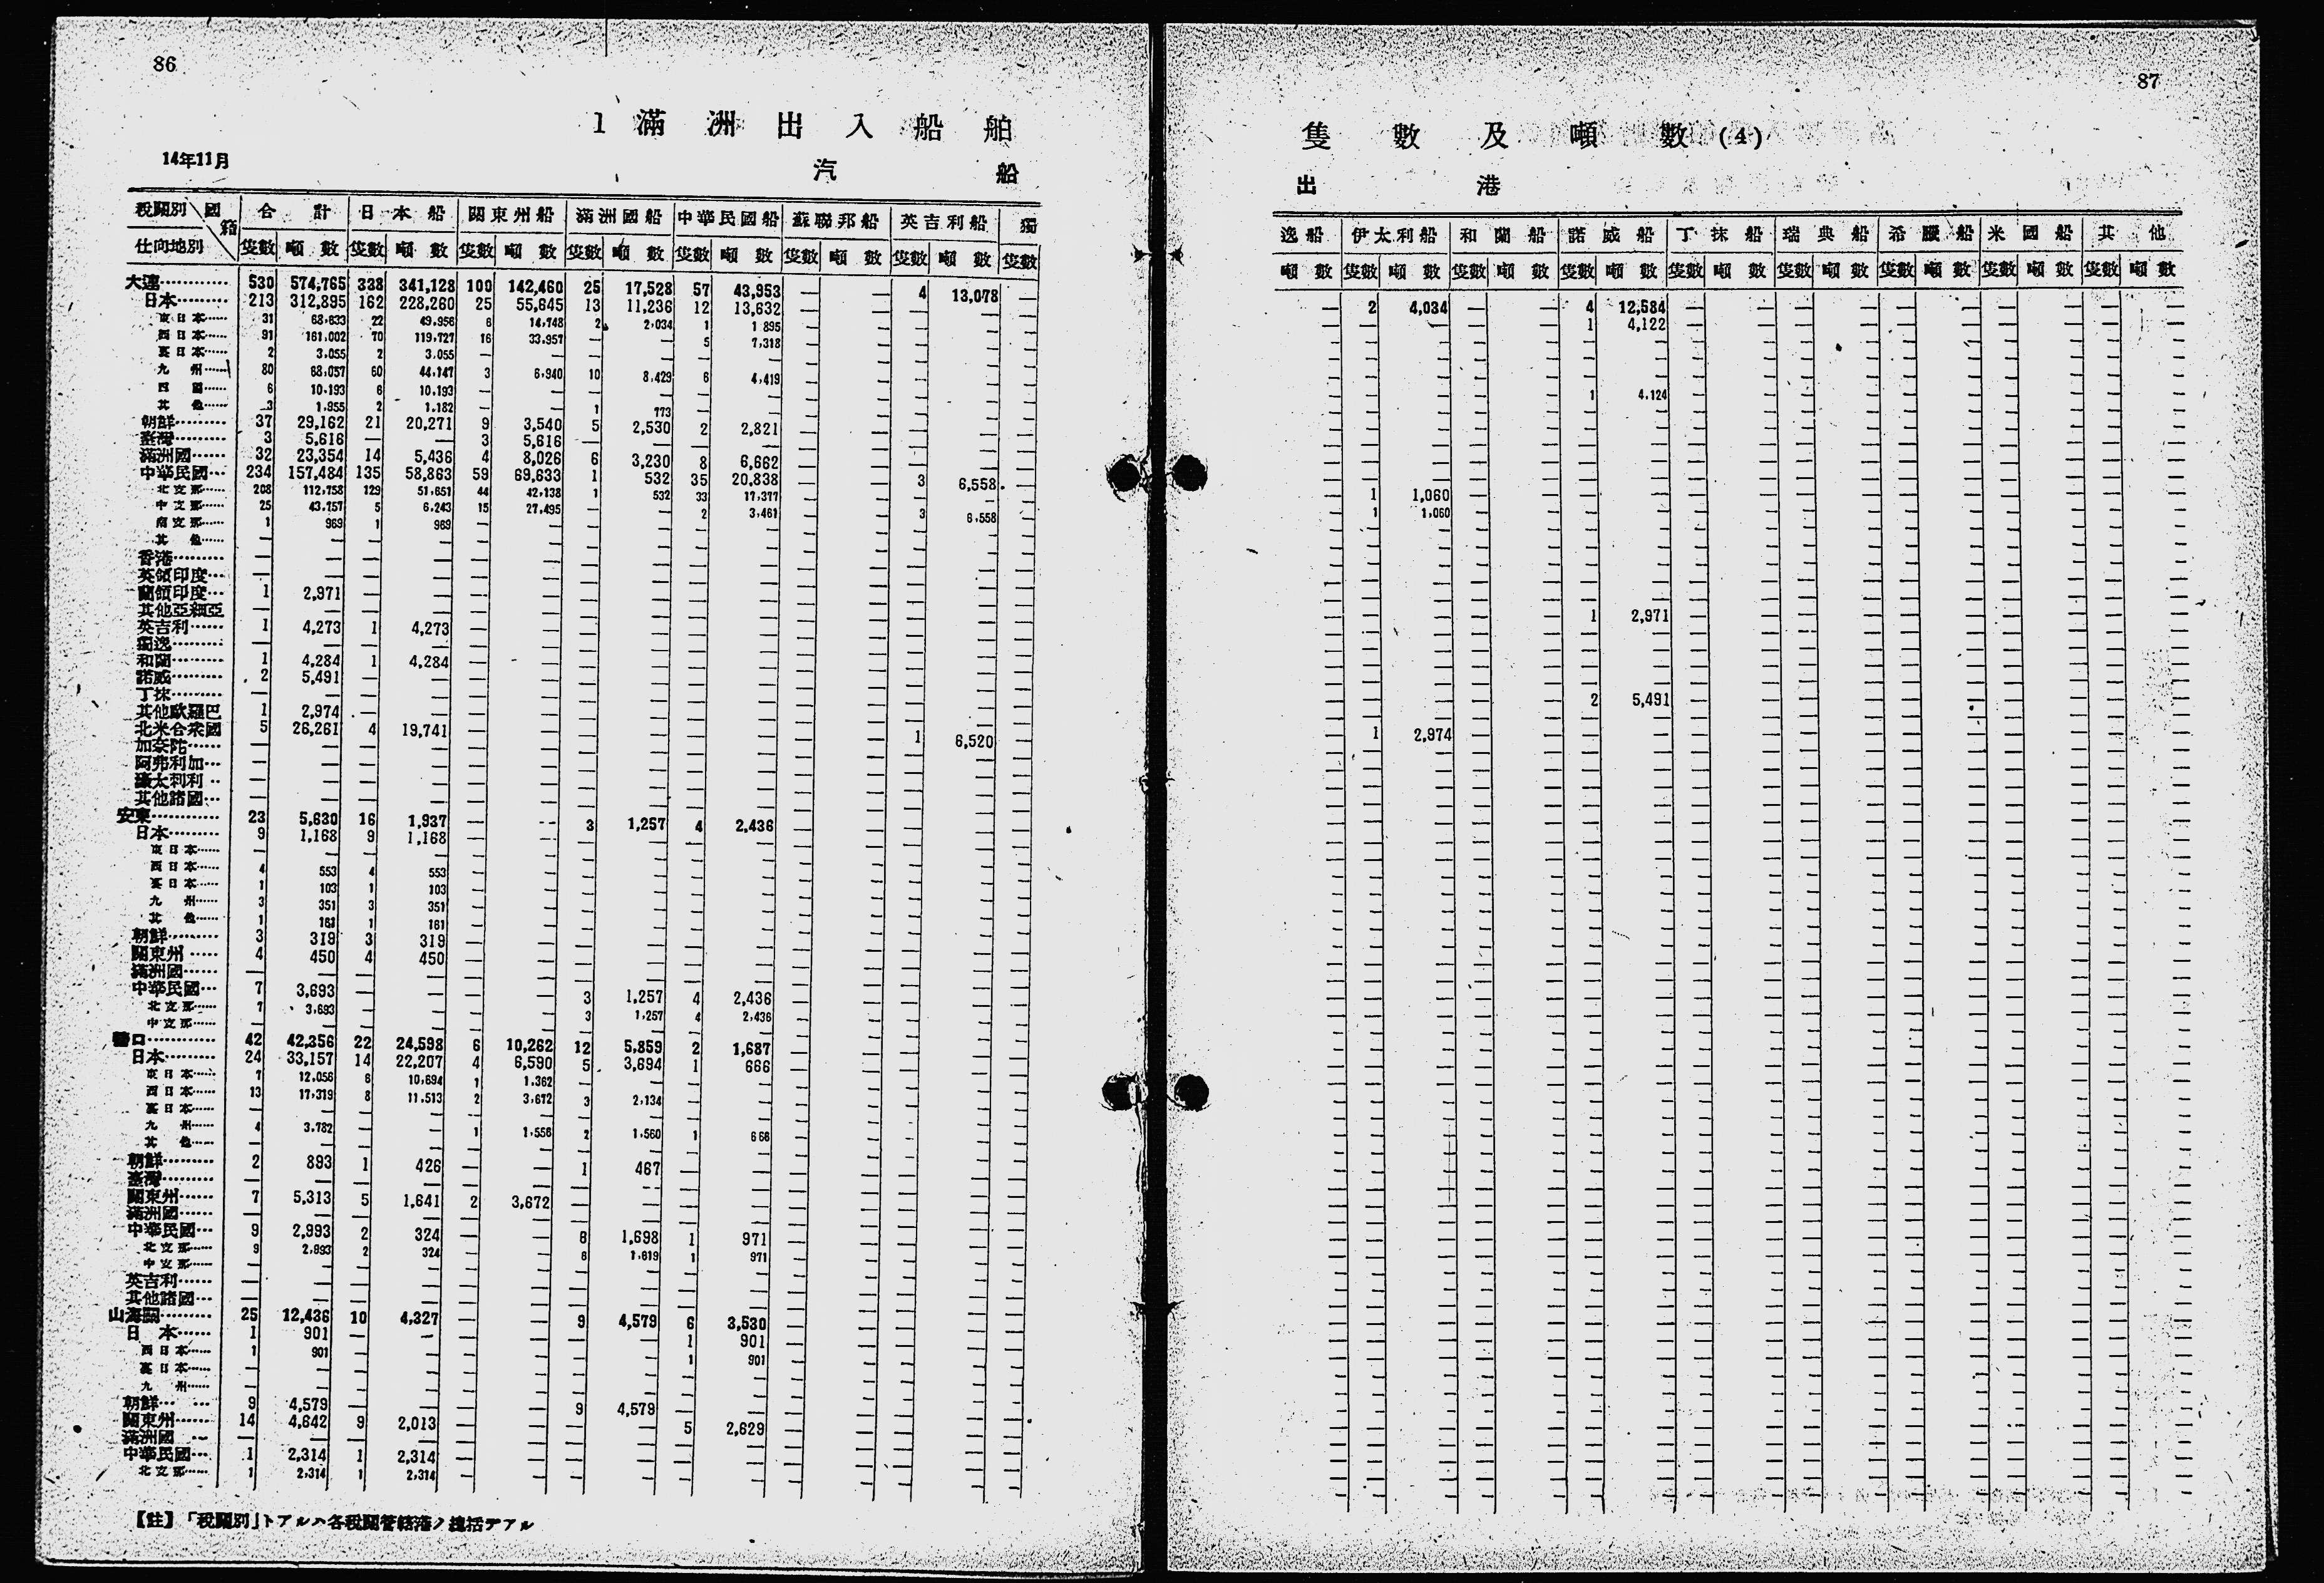 86
1 滿洲出入船舶
14年11月
汽船
税關別 國籍 合計 日本船 關東州船 滿洲國船 中華民國船 蘇聯邦船 英吉利船 獨
仕向地別 隻數 噸數 隻數 噸數 隻數 噸數 隻數 噸數 隻數 噸數 隻數 噸數 隻數 噸數 隻數
大連………… 530 574,765 338 341,128 100 142,460 25 17,528 57 43,953 — — 4 13,078 —
日本……… 213 312,895 162 228,260 25 55,645 13 11,236 12 13,632 — — — — —
東日本…… 31 68,633 22 49,956 6 14,748 2 2,034 1 1 895 — — — — —
西日本…… 91 161,002 70 119,727 16 33,957 — — 5 7,318 — — — — —
裏日本…… 2 3,055 2 3,055 — — — — — — — — — — —
九州…… 80 68,057 60 44,147 3 6,940 10 8,429 6 4,419 — — — — —
四國…… 6 10,193 6 10,193 — — — — — — — — — — —
其他…… 3 1,955 2 1,182 — — 1 773 — — — — — — —
朝鮮……… 37 29,162 21 20,271 9 3,540 5 2,530 2 2,821 — — — — —
臺灣……… 3 5,616 — — 3 5,616 — — — — — — — — —
滿洲國…… 32 23,354 14 5,436 4 8,026 6 3,230 8 6,662 — — — — —
中華民國… 234 157,484 135 58,863 59 69,633 1 532 35 20,838 — — 3 6,558 —
北支那…… 208 112,758 129 51,651 44 42,138 1 532 33 17,377 — — — — —
中支那…… 25 43,757 5 6,243 15 27,495 — — 2 3,461 — — 3 6,558 —
南支那…… 1 969 1 969 — — — — — — — — — — —
其他…… — — — — — — — — — — — — — — —
香港……… — — — — — — — — — — — — — — —
英領印度… — — — — — — — — — — — — — — —
蘭領印度… 1 2,971 — — — — — — — — — — — — —
其他亞細亞 — — — — — — — — — — — — — — —
英吉利…… 1 4,273 1 4,273 — — — — — — — — — — —
獨逸……… — — — — — — — — — — — — — — —
和蘭……… 1 4,284 1 4,284 — — — — — — — — — — —
諾威……… 2 5,491 — — — — — — — — — — — — —
丁抹……… — — — — — — — — — — — — — — —
其他歐羅巴 1 2,974 — — — — — — — — — — — — —
北米合衆國 5 26,261 4 19,741 — — — — — — — — 1 6,520 —
加奈陀…… — — — — — — — — — — — — — — —
阿弗利加… — — — — — — — — — — — — — — —
濠太剌利… — — — — — — — — — — — — — — —
其他諸國… — — — — — — — — — — — — — — —
安東………… 23 5,630 16 1,937 — — 3 1,257 4 2,436 — — — — —
日本……… 9 1,168 9 1,168 — — — — — — — — — — —
東日本…… — — — — — — — — — — — — — — —
西日本…… 4 553 4 553 — — — — — — — — — — —
裏日本…… 1 103 1 103 — — — — — — — — — — —
九州…… 3 351 3 351 — — — — — — — — — — —
其他…… 1 161 1 161 — — — — — — — — — — —
朝鮮……… 3 319 3 319 — — — — — — — — — — —
關東州…… 4 450 4 450 — — — — — — — — — — —
滿洲國…… — — — — — — — — — — — — — — —
中華民國… 7 3,693 — — — — 3 1,257 4 2,436 — — — — —
北支那…… 7 3,693 — — — — 3 1,257 4 2,436 — — — — —
中支那…… — — — — — — — — — — — — — — —
營口………… 42 42,356 22 24,598 6 10,262 12 5,859 2 1,687 — — — — —
日本……… 24 33,157 14 22,207 4 6,590 5 3,694 1 666 — — — — —
東日本…… 7 12,056 6 10,694 1 1,362 — — — — — — — — —
西日本…… 13 17,319 8 11,513 2 3,672 3 2,134 — — — — — — —
裏日本…… — — — — — — — — — — — — — — —
九州…… 4 3,782 — — 1 1,556 2 1,560 1 666 — — — — —
其他…… — — — — — — — — — — — — — — —
朝鮮……… 2 893 1 426 — — 1 467 — — — — — — —
臺灣……… — — — — — — — — — — — — — — —
關東州…… 7 5,313 5 1,641 2 3,672 — — — — — — — — —
滿洲國…… — — — — — — — — — — — — — — —
中華民國… 9 2,993 2 324 — — 6 1,698 1 971 — — — — —
北支那…… 9 2,993 2 324 — — 6 1,619 1 971 — — — — —
中支那…… — — — — — — — — — — — — — — —
英吉利…… — — — — — — — — — — — — — — —
其他諸國… — — — — — — — — — — — — — — —
山海關……… 25 12,436 10 4,327 — — 9 4,579 6 3,530 — — — — —
日本…… 1 901 — — — — — — 1 901 — — — — —
西日本…… 1 901 — — — — — — 1 901 — — — — —
裏日本…… — — — — — — — — — — — — — — —
九州…… — — — — — — — — — — — — — — —
朝鮮… … 9 4,579 — — — — 9 4,579 — — — — — — —
關東州…… 14 4,642 9 2,013 — — — — 5 2,629 — — — — —
滿洲國 … — — — — — — — — — — — — — — —
中華民國… 1 2,314 1 2,314 — — — — — — — — — — —
北支那…… 1 2,314 1 2,314 — — — — — — — — — — —
【註】「税關別」トアルハ各税關管轄港ノ總括デアル
87
隻數及噸數(4)
出港
逸船 伊太利船 和蘭船 諾威船 丁抹船 瑞典船 希臘船 米國船 其他
噸數 隻數 噸數 隻數 噸數 隻數 噸數 隻數 噸數 隻數 噸數 隻數 噸數 隻數 噸數 隻數 噸數
— 2 4,034 — — 4 12,584 — — — — — — — — — —
— — — — — 1 4,122 — — — — — — — — — —
— — — — — 1 4,124 — — — — — — — — — —
— 1 1,060 — — — — — — — — — — — — — —
— 1 1,060 — — — — — — — — — — — — — —
— — — — — 1 2,971 — — — — — — — — — —
— — — — — 2 5,491 — — — — — — — — — —
— 1 2,974 — — — — — — — — — — — — — —